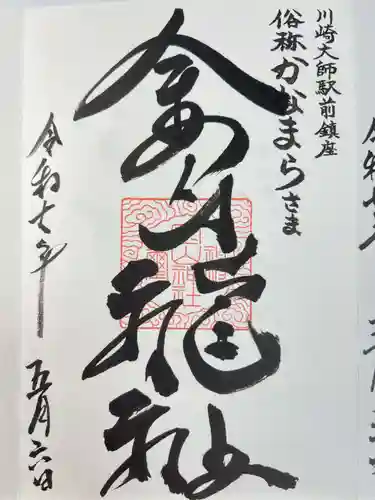 川崎大師駅前鎮座
俗称かなまらさま
金山神社
令和七年
五月六日